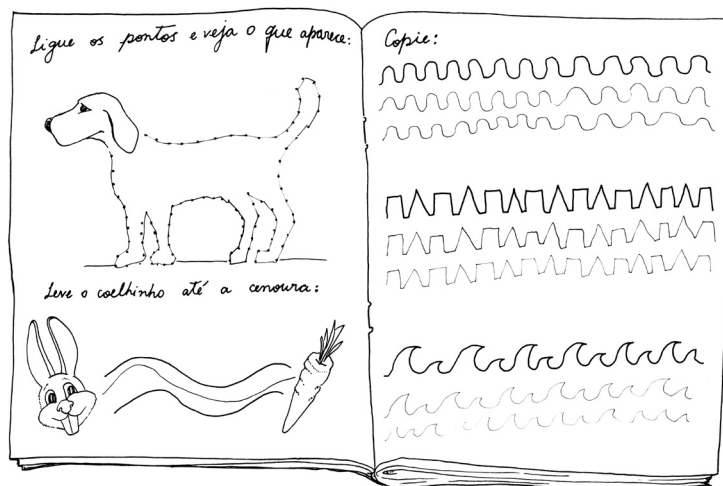 Ligue os pontos e veja o que aparece:
Leve o coelhinho até a cenoura:
Copie: